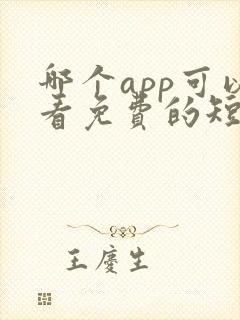 哪个app可以
看免费的短
王庆生